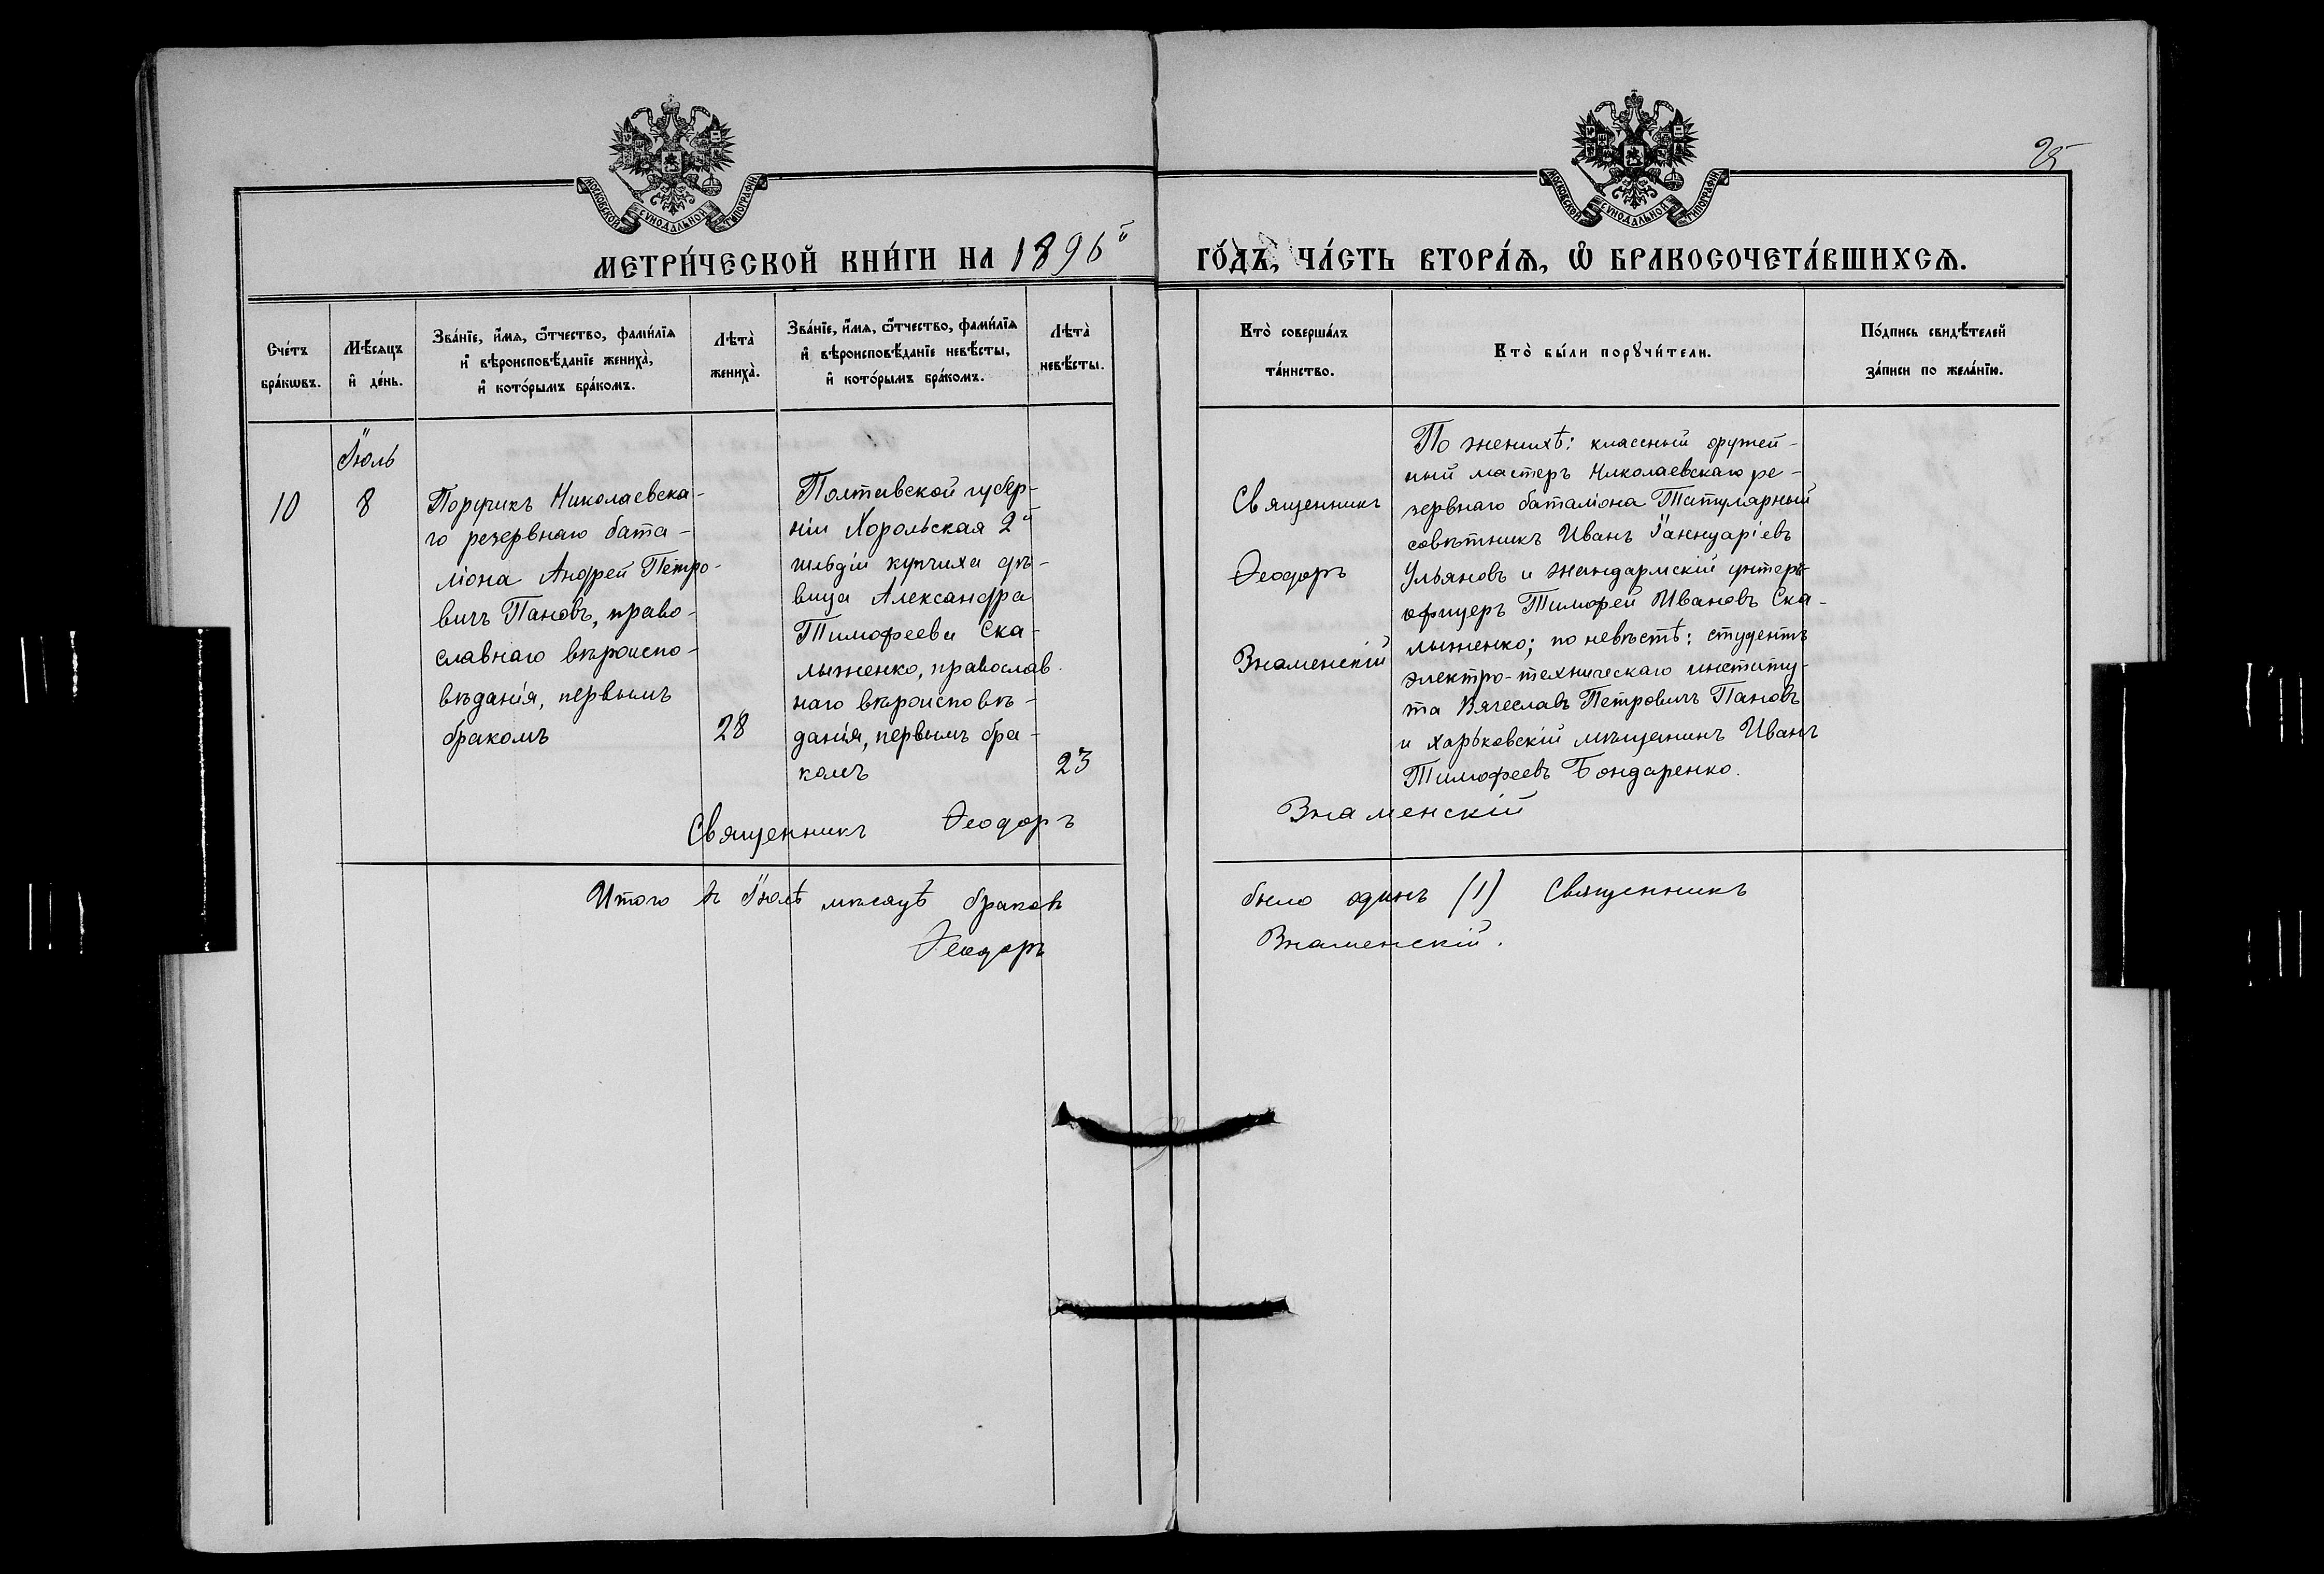 25
МОСКОВСКОЙ СѴНОДАЛЬНОЙ ТИПОГРАФІИ
МОСКОВСКОЙ СѴНОДАЛЬНОЙ ТИПОГРАФІИ
МЕТРИ́ЧЕСКОЙ КНИ́ГИ НА 1896й ГО́ДЪ, ЧА́СТЬ ВТОРА́Ѧ, Ѿ БРАКОСОЧЕТА́ВШИХСѦ.
Сче́тъ
бра́кѡвъ.
Мѣ́сяцъ
и҆ де́нь.
Зва́нїе, и҆́мѧ, ѻ҆́тчество, фами́лїѧ
и҆ вѣроисповѣ́данїе жениха̀,
и҆ кото́рымъ бра́комъ.
Лѣта̀
жениха̀.
Зва́нїе, и҆́мѧ, ѻ҆́тчество, фами́лїѧ
и҆ вѣроисповѣ́данїе невѣ́сты,
и҆ кото́рымъ бра́комъ.
Лѣта̀
невѣ́сты.
Кто̀ соверша́лъ
та́инство.
Кто̀ бы́ли порꙋчи́тели.
По́дпись свидѣ́телей
за́писи по жела́нїю.
10
Іюль
8
Поручикъ Николаевска-
го резервнаго бата-
ліона Андрей Петро-
вичъ Пановъ, право-
славнаго вѣроиспо-
вѣданія, первымъ
бракомъ
28
Полтавской губер-
ніи Хорольская 2й
гильдіи купчиха дѣ-
вица Александра
Тимофеева Ска-
лыженко, православ-
наго вѣроисповѣ-
данія, первымъ бра-
комъ
23
Священникъ
Ѳеодоръ
Знаменскій
По женихѣ: классный оружей-
ный мастеръ Николаевскаго ре-
зервнаго баталіона Титулярный
совѣтникъ Иванъ Іаннуаріевъ
Ульяновъ и жандармскій унтеръ-
офицеръ Тимофей Ивановъ Ска-
лыженко; по невѣстѣ: студентъ
электро-техническаго институ-
та Вячеславъ Петровичъ Пановъ
и харьковскій мѣщанинъ Иванъ
Тимофеевъ Бондаренко.
Священникъ Ѳеодоръ Знаменскій
Итого въ Іюлѣ мѣсяцѣ браковъ было одинъ (1) Священникъ
Ѳеодоръ Знаменскій.